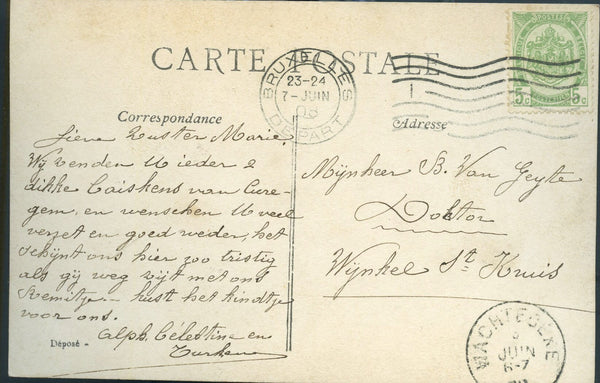 CARTE POSTALE
BRUXELLES
23-24
7-JUIN
08
DÉPART
5c 5c
Correspondance
Adresse
Lieve Zuster Marie,
Wy zenden U ieder 2
dikke Baiskens van Cure-
gem, en wenschen U veel
verzet en goed weder, het
schynt ons hier zoo tristig
als gij weg zijt met ons
Remitje — kust het kindtje
voor ons.
Alph. Célestine en
Mijnheer B. Van Geyte
Doktor
Wynkel St Kruis
Déposé -
WACHTEBEKE
JUIN
6-7